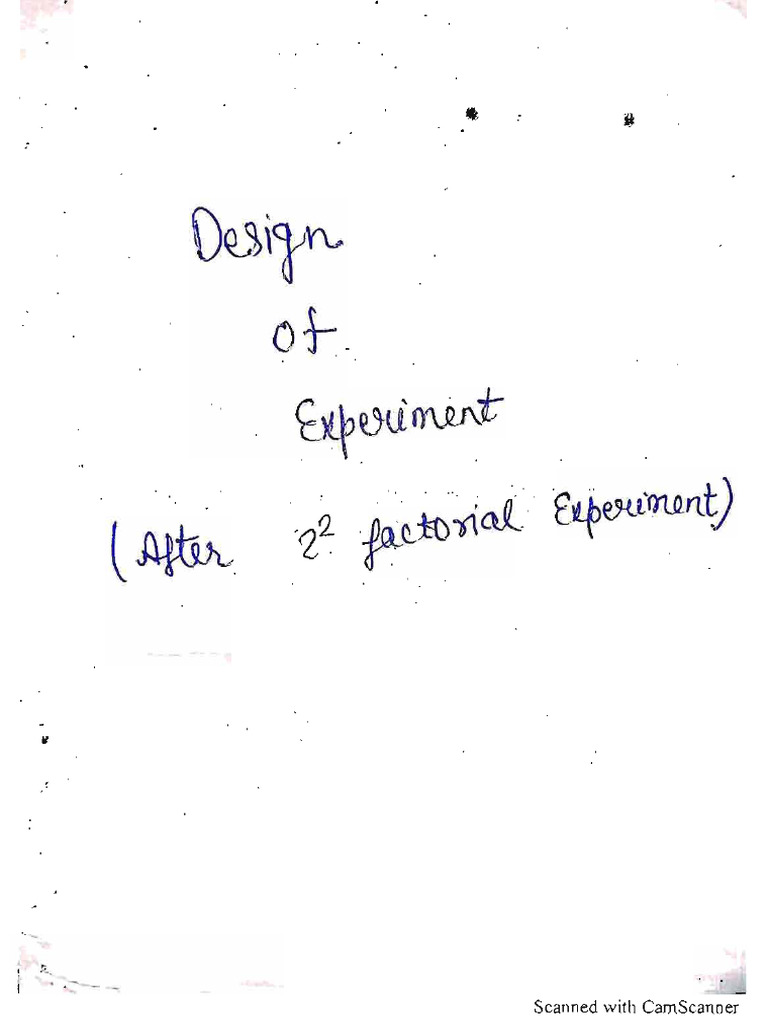 Design
of
Experiment
(After 2² factorial Experiment)
Scanned with CamScanner